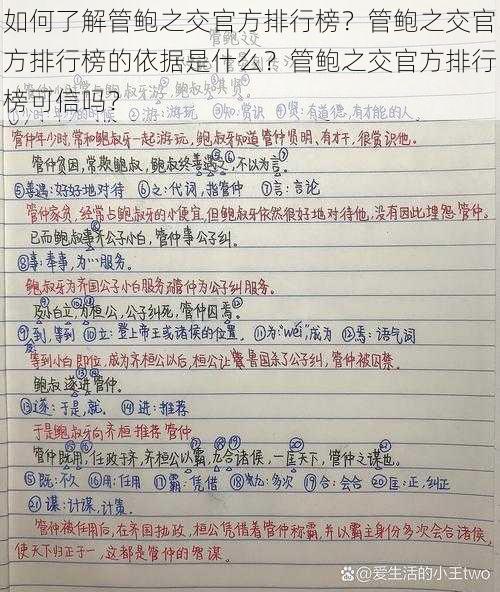 如何了解管鲍之交官方排行榜？管鲍之交官
方排行榜的依据是什么？管鲍之交官方排行
榜可信吗？
管鲍之交
①少时：年少的时候 ②游：游玩 ③知：赏识 ④贤：有道德，有才能的人。
管仲年少时，常和鲍叔牙一起游玩，鲍叔牙知道管仲贤明、有才干，很赏识他。
管仲贫困，常欺鲍叔，鲍叔终善遇之，不以为言。
⑤善遇：好好地对待 ⑥之：代词，指管仲 ⑦言：言论
管仲家贫，经常占鲍叔牙的小便宜，但鲍叔牙依然很好地对待他，没有因此埋怨管仲。
已而鲍叔事齐公子小白，管仲事公子纠。
⑧事：奉事，为…服务。
鲍叔牙为齐国公子小白服务，管仲为公子纠服务。
及小白立为桓公，公子纠死，管仲囚焉。
⑨到，等到 ⑩立：登上帝王或诸侯的位置。 ⑪为："wéi"，成为 ⑫焉：语气词
等到小白即位，成为齐桓公以后，桓公让鲁国杀了公子纠，管仲被囚禁。
鲍叔遂进管仲。
⑬遂：于是，就。 ⑭进：推荐
于是鲍叔牙向齐桓推荐管仲
管仲既用，任政于齐，齐桓公以霸，九合诸侯，一匡天下，管仲之谋也。
⑮既：不久 ⑯用：任用 ⑰霸：凭借 ⑱九：多次 ⑲合：会合 ⑳匡：正，纠正
㉑谋：计谋，计策。
管仲被任用后，在齐国执政，桓公凭借着管仲称霸，并以霸主身份多次会合诸侯，
使天下归正于一，这都是管仲的智谋。
爱生活的小王two